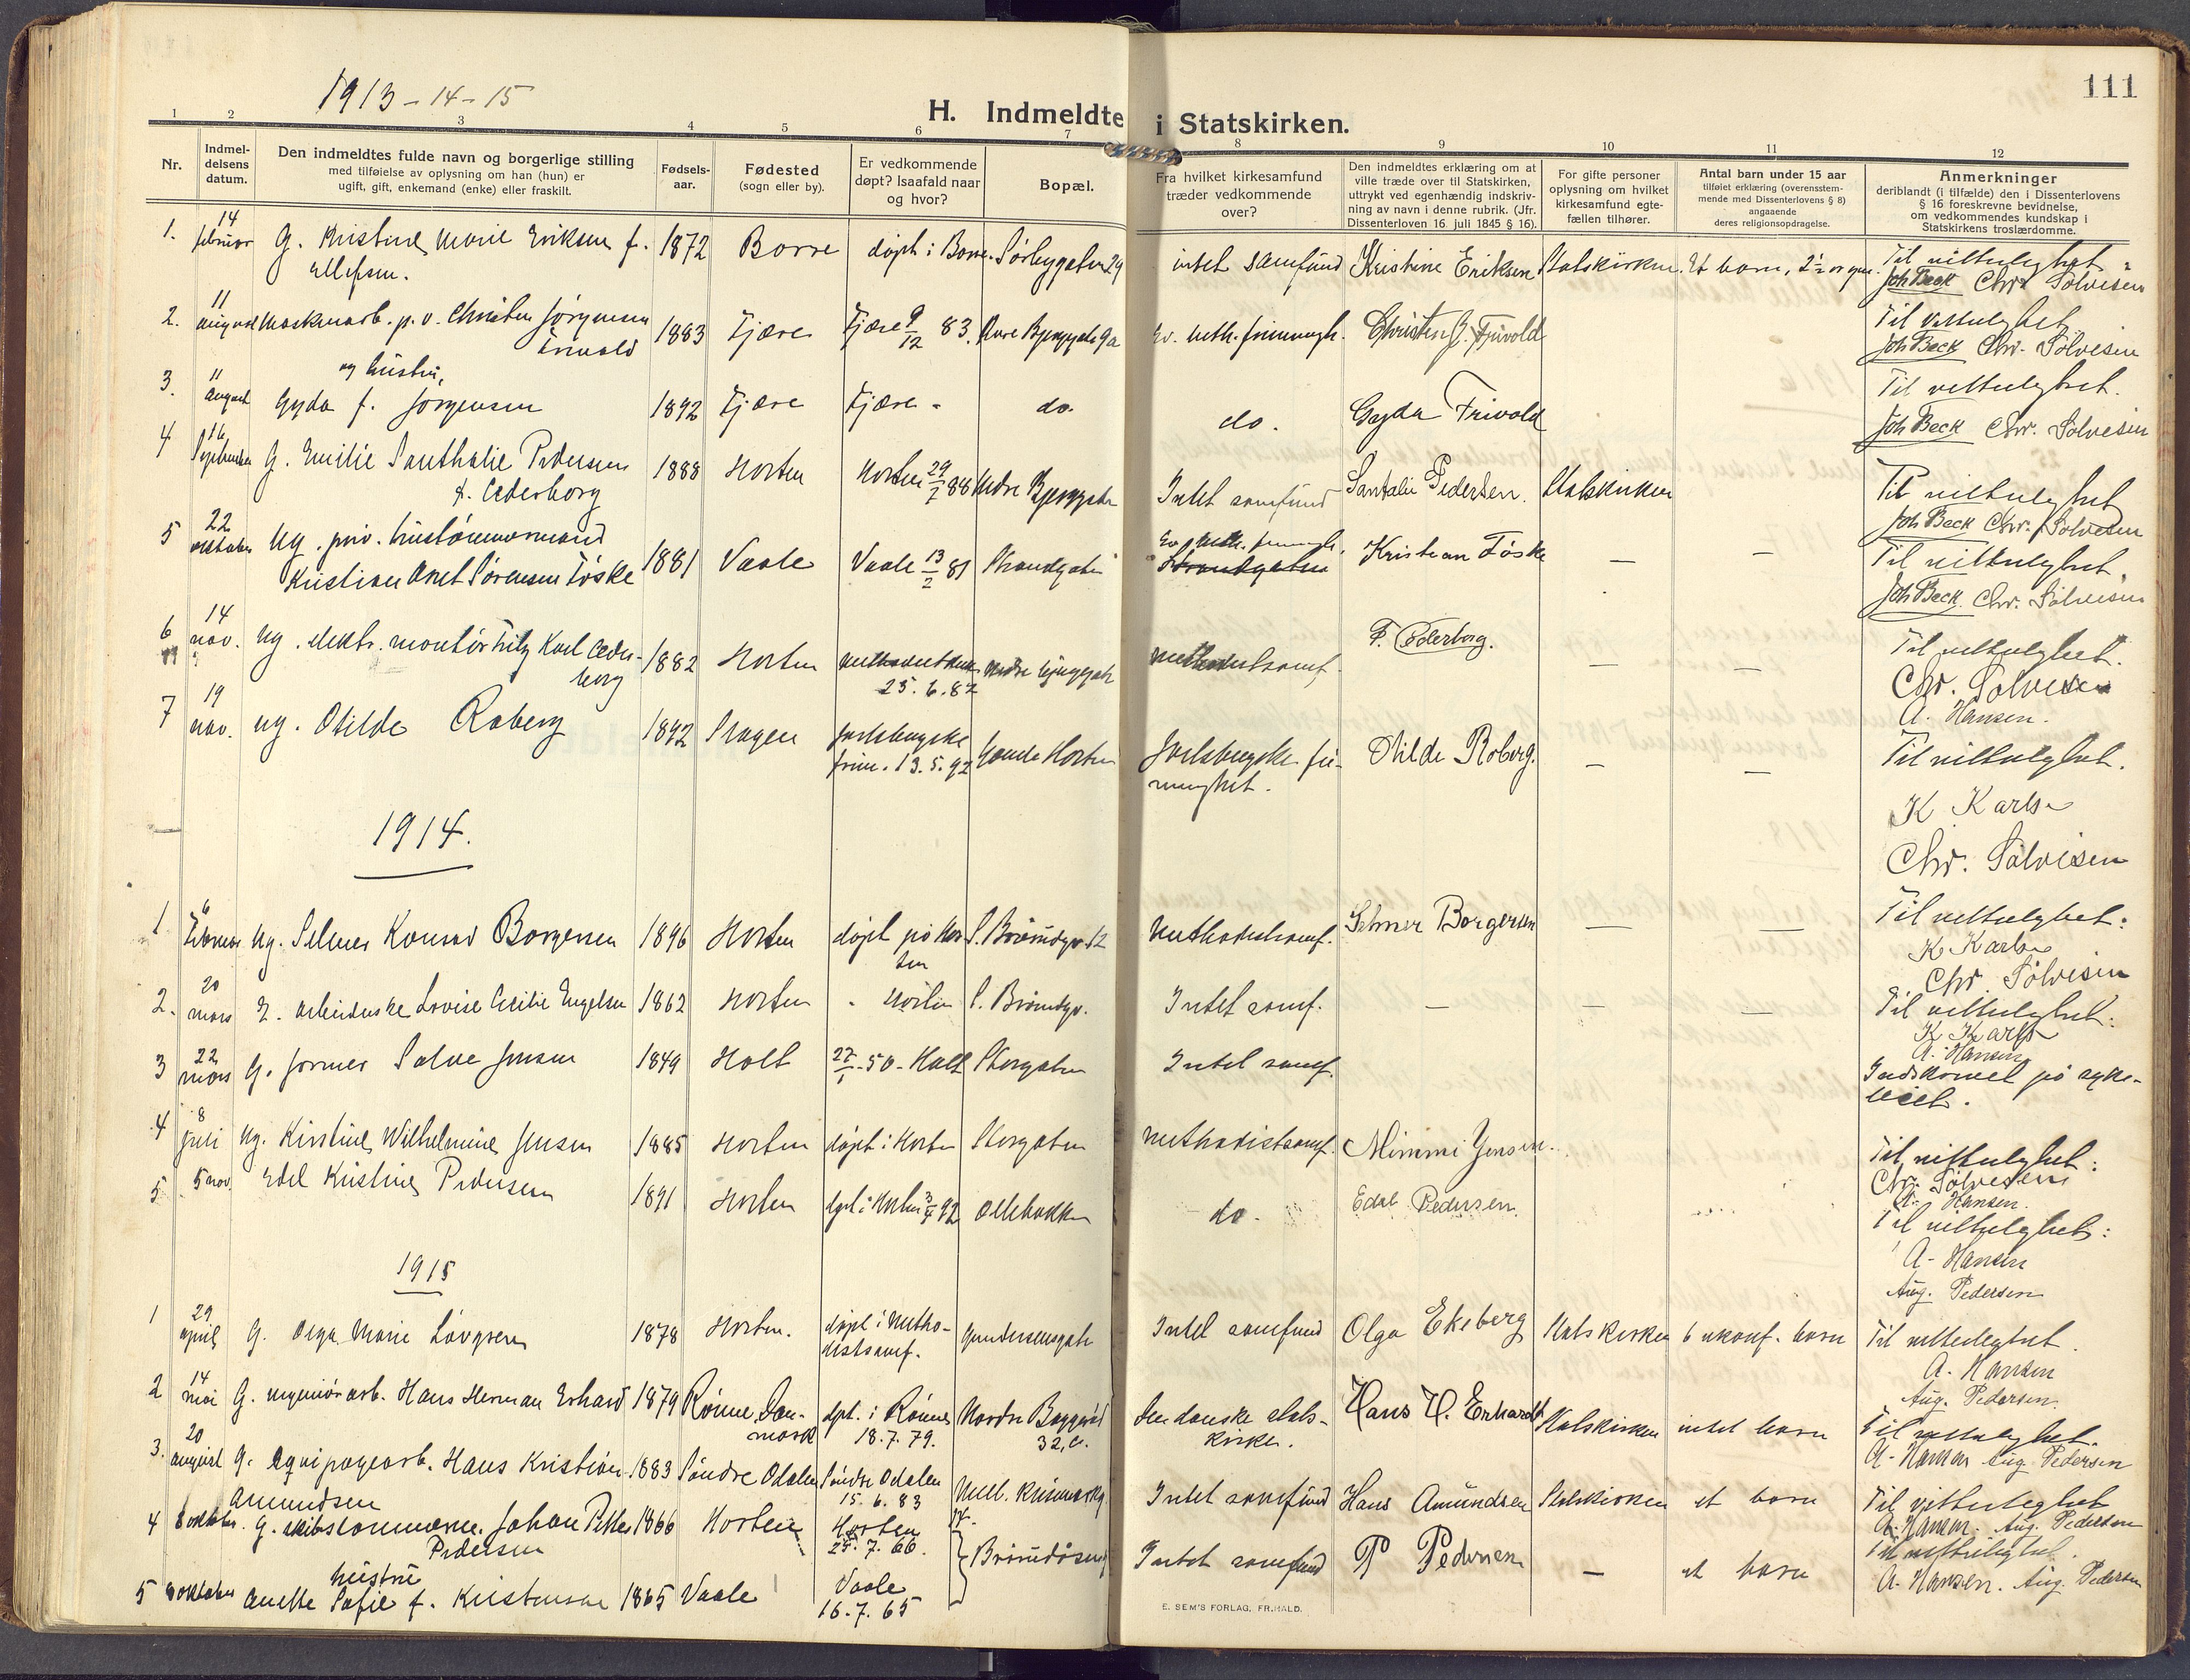 1913-14-15
111
H. Indmeldte i Statskirken.
1 2 3 4 5 6 7 8 9 10 11 12
Nr.
Indmel-
delsens
datum.
Den indmeldtes fulde navn og borgerlige stilling
med tilføielse av oplysning om han (hun) er
ugift, gift, enkemand (enke) eller fraskilt.
Fødsels-
aar.
Fødested
(sogn eller by).
Er vedkommende
døpt? Isaafald naar
og hvor?
Bopæl.
Fra hvilket kirkesamfund
træder vedkommende
over?
Den indmeldtes erklæring om at
ville træde over til Statskirken,
uttrykt ved egenhændig indskriv-
ning av navn i denne rubrik. (Jfr.
Dissenterloven 16. juli 1845 § 16).
For gifte personer
oplysning om hvilket
kirkesamfund egte-
fællen tilhører.
Antal barn under 15 aar
tilføiet erklæring (overensstem-
mende med Dissenterlovens § 8)
angaaende
deres religionsopdragelse.
Anmerkninger
deriblandt (i tilfælde) den i Dissenterlovens
§ 16 foreskrevne bevidnelse,
om vedkommendes kundskap i
Statskirkens troslærdomme.
1. 14 februar G. Kristine Marie Eriksen f. 1872 Borre døpt i Borre. Sørbygaten 29 intet samfund Kristine Eriksen Statskirken. Et barn, 2½ Til vitterlighet:
Ellefsen. Joh Beck Chr. Solvesen
2. 11 august Maskinarb. p. v. Christen Jørgensen 1883 Fjære Fjære 9/12 83. 9a Ev. luth. frimenigh. Christen J. Frivold Til vitterlighet
Frivold Joh Beck Chr. Solvesen
og hustru,
3. 11 august Gyda f. Jørgensen 1892 Fjære Fjære - do. do. Gyda Frivold Til vitterlighet.
Joh Beck Chr. Solvesen
4 16 September G. Emilie Santhalie Pedersen 1888 Horten Horten 29/7 88 Nedre Bjerggate Intet samfund Santalie Pedersen. Statskirken Til vitterlighet
f. Cederborg Joh Beck Chr. Solvesen
5 22 oktober Ug. priv. hustømmermand
Kristian Anet Sørensen Føske 1881 Vaale Vaale 13/2 81 Strandgaten Ev. luth. frimenigh. Kristian Føske — — Til vitterlighet,
Strandgaten Joh Beck. Chr. Solvesen
6 14 nov. Ug. elektr. montør Fritz Karl Ceder- 1882 Horten Methodistkirken Nedre Bjerggate Methodistsamf. F. Cederborg. — — Til vitterlighet.
borg 25. 6. 82 Chr. Solvesen
A. Hansen.
7 19 nov. ug. Otilde Roberg 1892 Skagen Jarlsbergske Horten Jarlsbergske fri- Otilde Roberg. — — Til vitterlighet.
frim. 13. 5. 92 menighet.
K Karlsen
Chr. Solvesen
1914.
1 6 Februar Ug. Selmer Konrad Borgersen 1896 Horten døpt på Hor- S. Brårudgv. 12 Methodistsamf. Selmer Borgersen — — Til vitterlighet:
ten K Karlsen
Chr Solvesen
2. 20 mars E. arbeiderske Lovise Cecilie Engelsen 1862 Horten - Horten S. Brårudgv. Intet samf. — — — Til vitterlighet:
K Karlsen
A. Hansen
3 22 mars G. former Salve Jensen 1849 Holt 27/1 - 50 - Holt Storgaten Intet samf. Indskrevet på syke-
leiet.
4 8 juli Ug. Kirstine Wilhelmine Jensen 1885 Horten døpt i Horten Storgaten Methodistsamf. Mimmi Jensen. Til vitterlighet:
Chr. Solvesen
A. Hansen.
5 5 nov. Edel Kristine Pedersen 1891 Horten dpt. i Horten 3/4 92 Ollebakken do. Edel Pedersen. Til vitterlighet:
A. Hansen
Aug. Pedersen
1915
1 29 april G. Olga Marie Løvgren 1878 Horten. døpt i Metho- Gundersensgate Intet samfund Olga Ekeberg Statskirken 6 ukonf. barn Til vitterlighet.
distsamf. A. Hansen
Aug. Pedersen.
2 14 mai G. ingeniørarb. Hans Herman Erhard 1879 Rønne Dan- dpt. i Rønne Nordre Den danske stats- Hans H. Erhardt Statskirken intet barn Til vitterlighet.
mark 18. 7. 79. 32, c. kirke. A. Hansen Aug Pedersen
3. 20 august G. Eqvipagearb. Hans Kristian 1883 Søndre Odalen Søndre Odalen Intet samfund Hans Amundsen Statskirken et barn Til vitterlighet
Amundsen 15. 6. 83 A. Hansen. Aug. Pedersen
4 8 oktober. G. skibstømmerm. Johan Petter 1866 Horten Horten Intet samfund P Pedersen — et barn Til vitterlighet.
Pedersen 27. 7. 66. Brårudåsen A. Hansen. Aug. Pedersen
hustru
5 8 oktober Anette Sofie f. Kristensen 1865 Vaale Vaale
16. 7. 65
E. SEM'S FORLAG, FR.HALD.